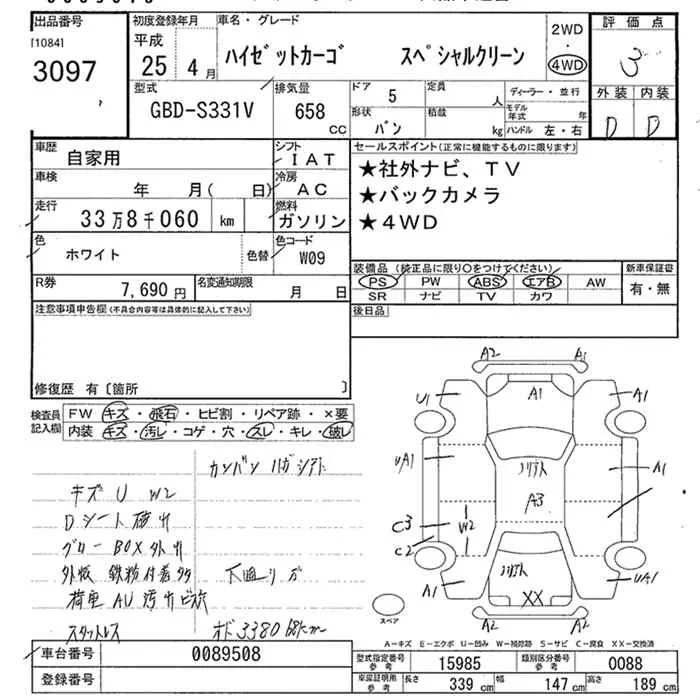 出品番号
[1084]
3097
初度登録年月
平成
25 4 月
車名・グレード
ハイゼットカーゴ スペシャルクリーン
2WD
・
4WD
評価点
3
外装 内装
D D
型式
GBD-S331V
排気量
658 CC
ドア 5
形状 バン
定員 人
積載 kg
ディーラー・並行
モデル年式 年
ハンドル 左・右
車歴 自家用
シフト IAT
車検 年 月( 日)
冷房 AC
走行 33万8千060 km
燃料 ガソリン
色 ホワイト 色替
色コード W09
R券 7,690 円
名変通知期限 月 日
セールスポイント(正常に機能するものに限ります)
★社外ナビ、TV
★バックカメラ
★4WD
装備品(純正品に限り○をつけてください)
PS PW ABS エアB AW
SR ナビ TV カワ
新車保証書
有・無
後日品
注意事項申告欄(不具合内容等は具体的に記入して下さい)
修復歴 有〔箇所 〕
検査員記入欄
FW キズ・飛石・ヒビ割・リペア跡・×要
内装 キズ・汚レ・コゲ・穴・スレ・キレ・破レ
キズ U W2
Dシート破れ
グローBOX外れ
スタットレス
A2 A1
U1 A1 A1
UA1 A1
A3
C3 W2
C2
A1 XX UA1
A2 A2
スペア
A-キズ E-エクボ U-凹み W-補修跡 S-サビ C-腐食 XX-交換済
車台番号 0089508
登録番号
型式指定番号 参考 15985
類別区分番号 参考 0088
車庫証明用 参考 長さ 339 cm 幅 147 cm 高さ 189 cm